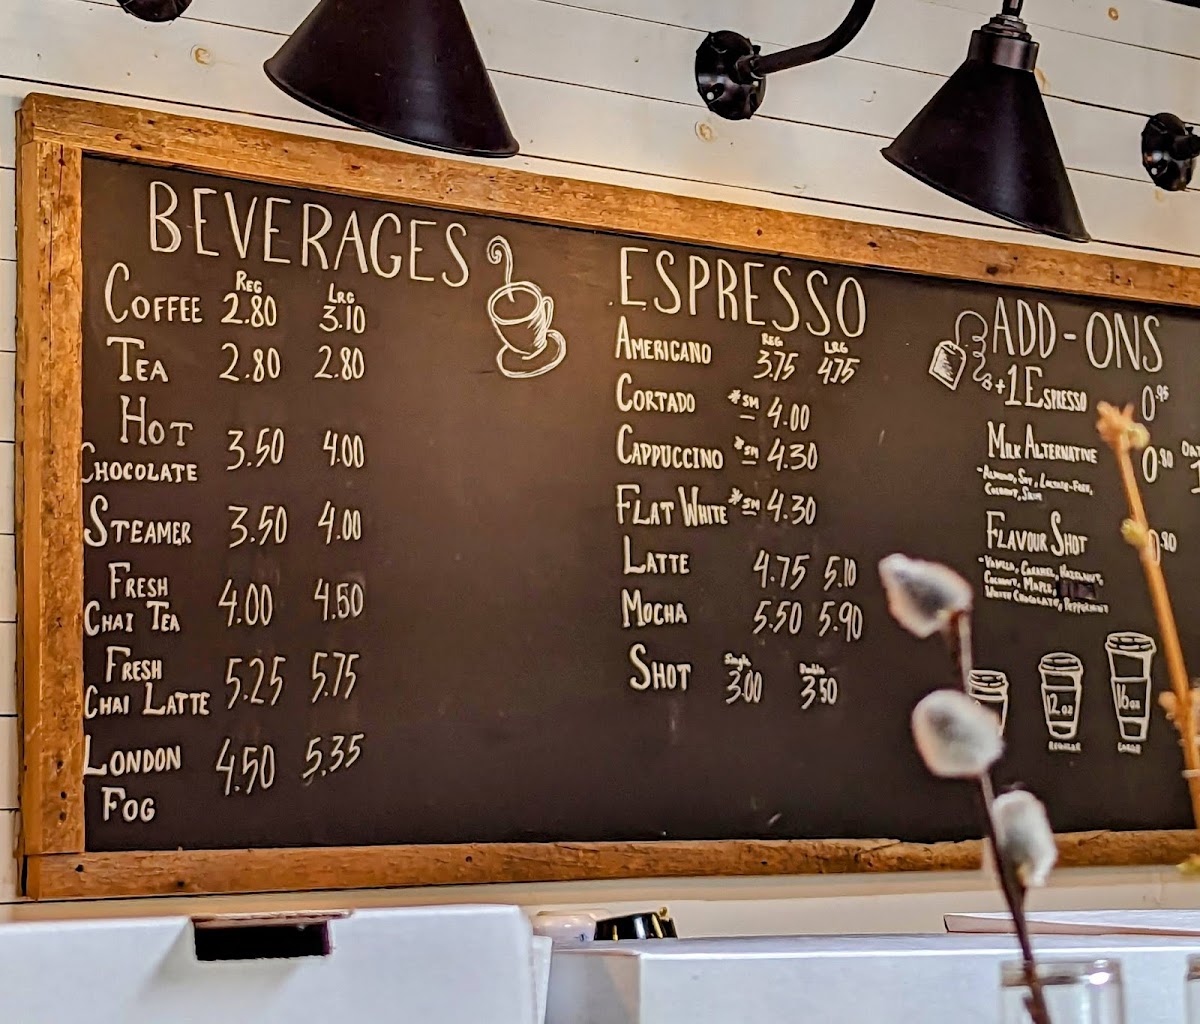 BEVERAGES
REG LRG
COFFEE 2.80 3.10
TEA 2.80 2.80
HOT
CHOCOLATE 3.50 4.00
STEAMER 3.50 4.00
FRESH
CHAI TEA 4.00 4.50
FRESH
CHAI LATTE 5.25 5.75
LONDON 4.50 5.35
FOG
ESPRESSO
REG LRG
AMERICANO 3.75 4.75
CORTADO *SM 4.00
CAPPUCCINO *SM 4.30
FLAT WHITE *SM 4.30
LATTE 4.75 5.10
MOCHA 5.50 5.90
Single Double
SHOT 3.00 3.50
ADD-ONS
+1 ESPRESSO 0.95
MILK ALTERNATIVE 0.80
-ALMOND, SOY, LACTOSE-FREE,
COCONUT, SKIM
FLAVOUR SHOT 0.80
-VANILLA, CARAMEL, HAZELNUT,
COCONUT, MAPLE,
WHITE CHOCOLATE, PEPPERMINT
12 oz 16 oz
REGULAR LARGE